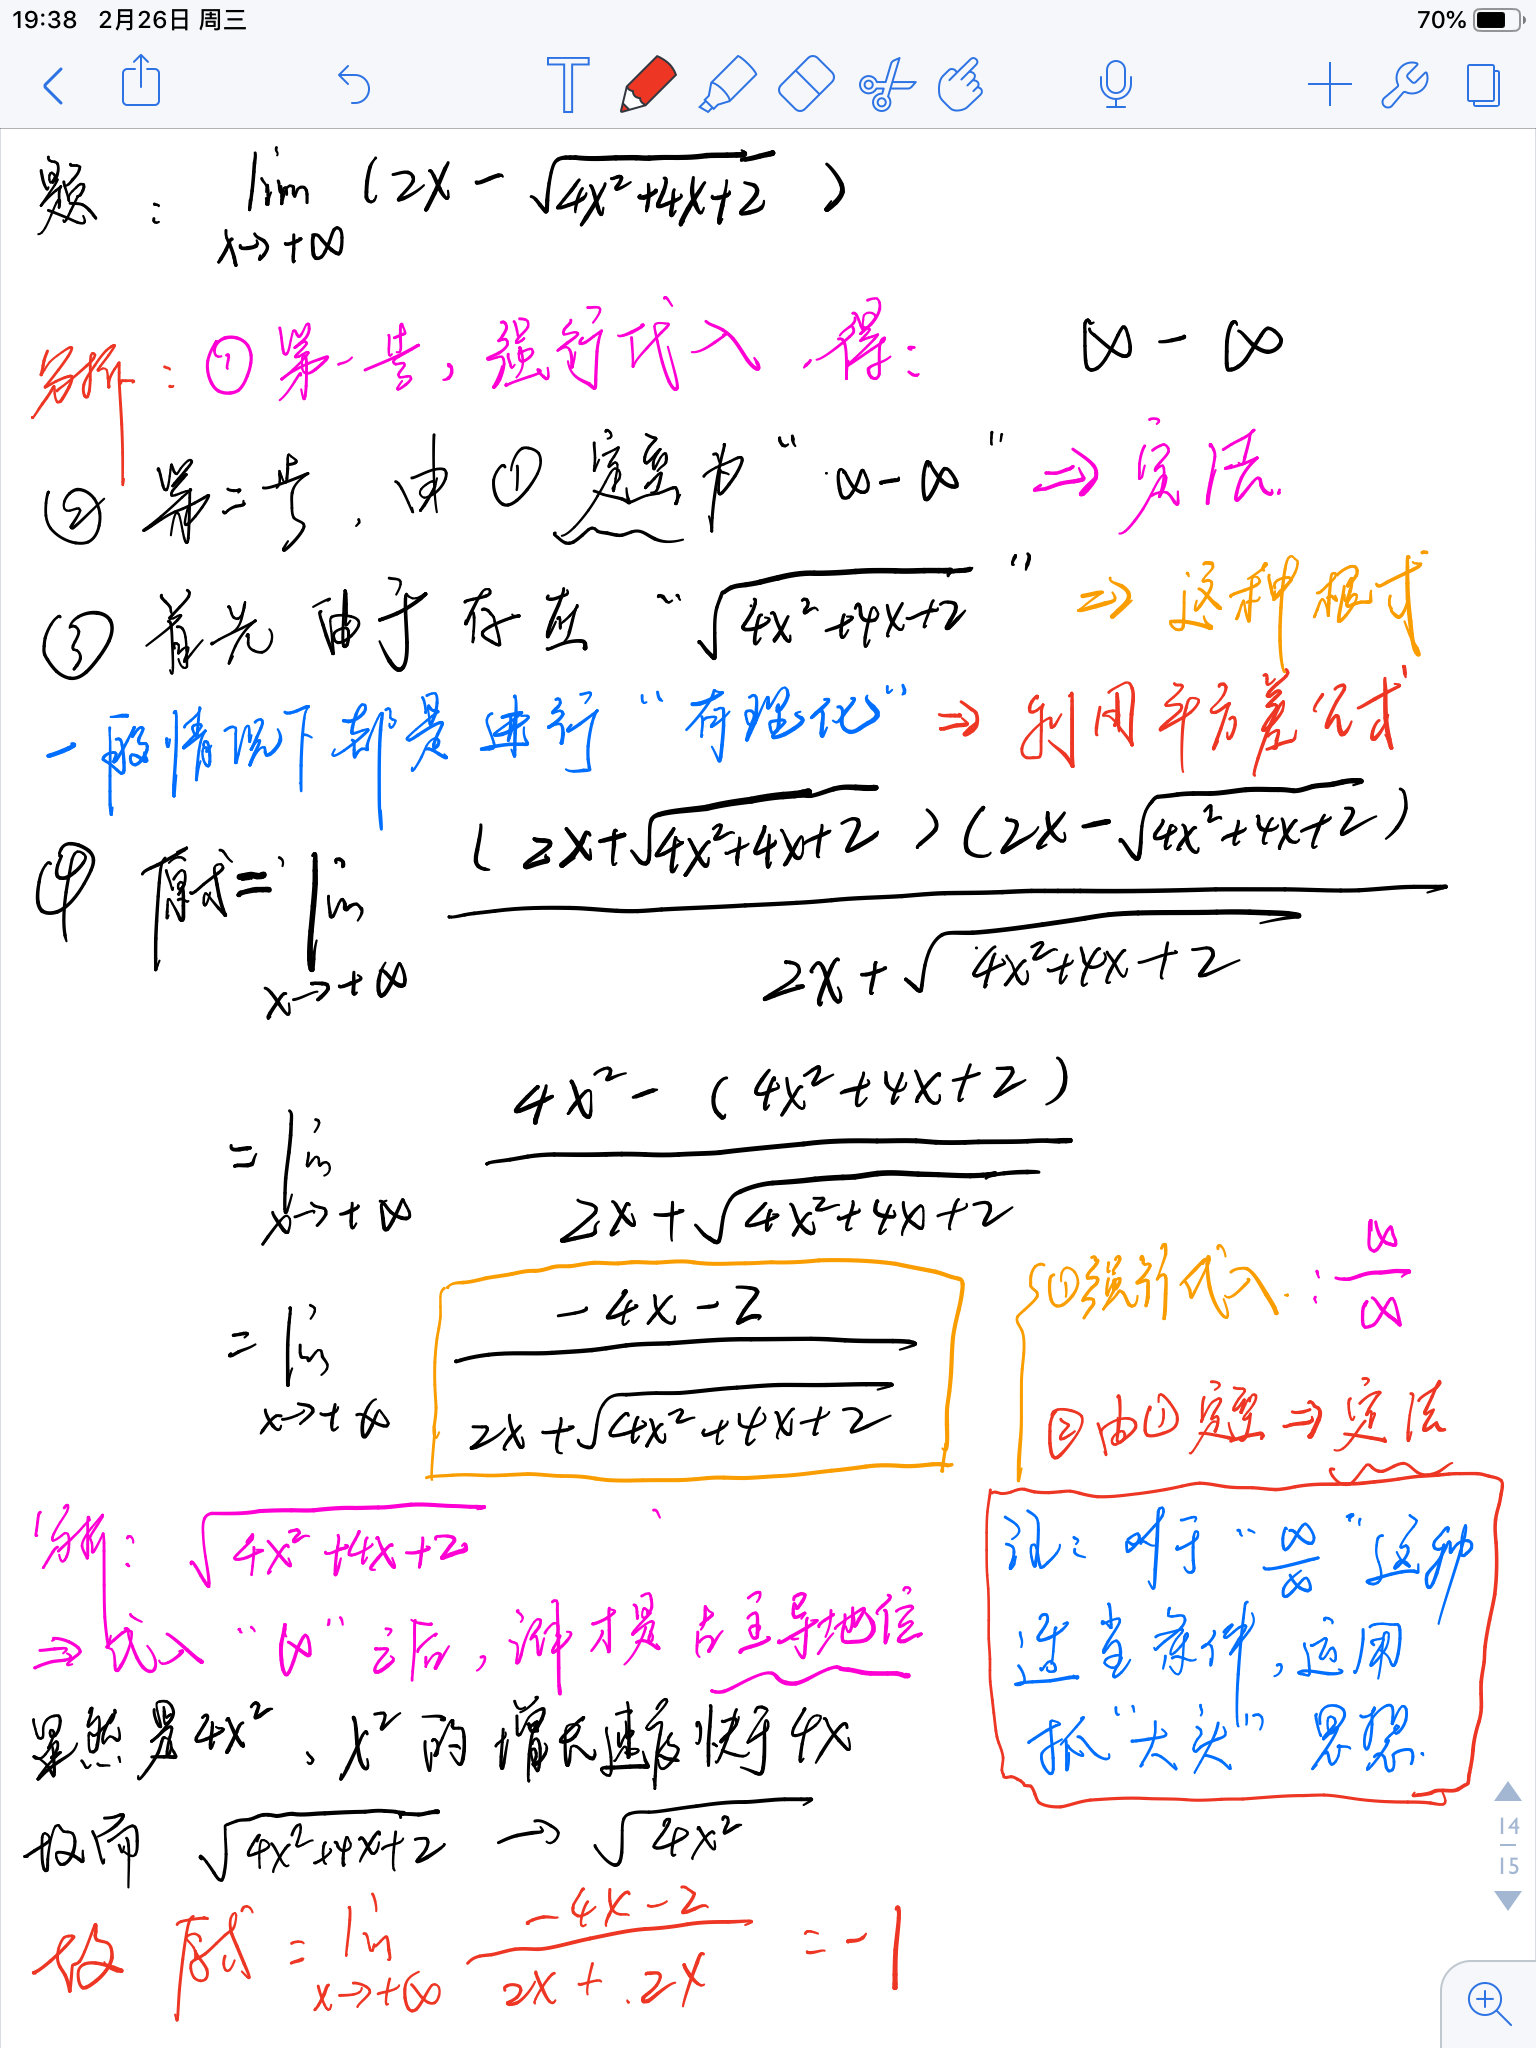 19:38 2月26日 周三 70%
题: lim x→+∞ (2x - √(4x²+4x+2))
分析: ① 第一步, 强行代入, 得: ∞ - ∞
② 第二步, 由①定型为 "∞-∞" ⇒ 定法.
③ 首先由于存在 "√(4x²+4x+2)" ⇒ 这种根式
一般情况下都是进行 "有理化" ⇒ 利用平方差公式
④ 原式 = lim x→+∞ (2x+√(4x²+4x+2))(2x-√(4x²+4x+2)) / (2x+√(4x²+4x+2))
= lim x→+∞ (4x² - (4x²+4x+2)) / (2x+√(4x²+4x+2))
= lim x→+∞ (-4x-2) / (2x+√(4x²+4x+2))
①强行代入: ∞/∞
②由①定型 ⇒ 定法
分析: √(4x²+4x+2)
⇒ 代入 "∞" 之后, 谁才是占主导地位
显然是4x², x²的增长速度快于4x
故而 √(4x²+4x+2) → √(4x²)
故 原式 = lim x→+∞ (-4x-2) / (2x+2x) = -1
注: 对于 "∞/∞" 这种
适当条件, 运用
抓 "大头" 思想.
14
15